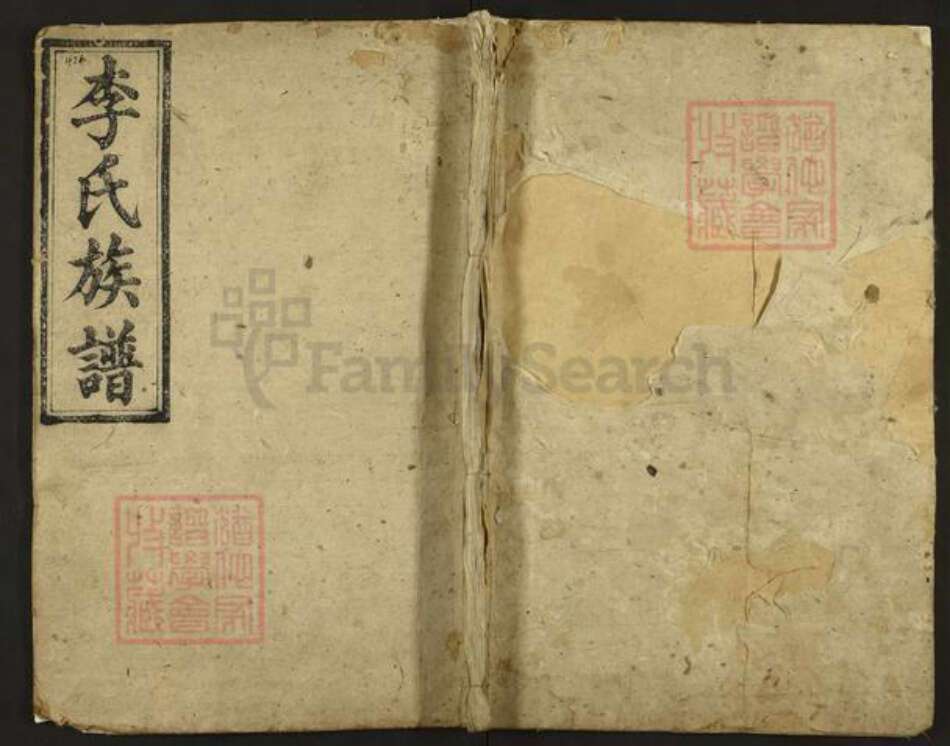 李氏族譜
猶他家
譜學會
收藏
FamilySearch
猶他家
譜學會
收藏